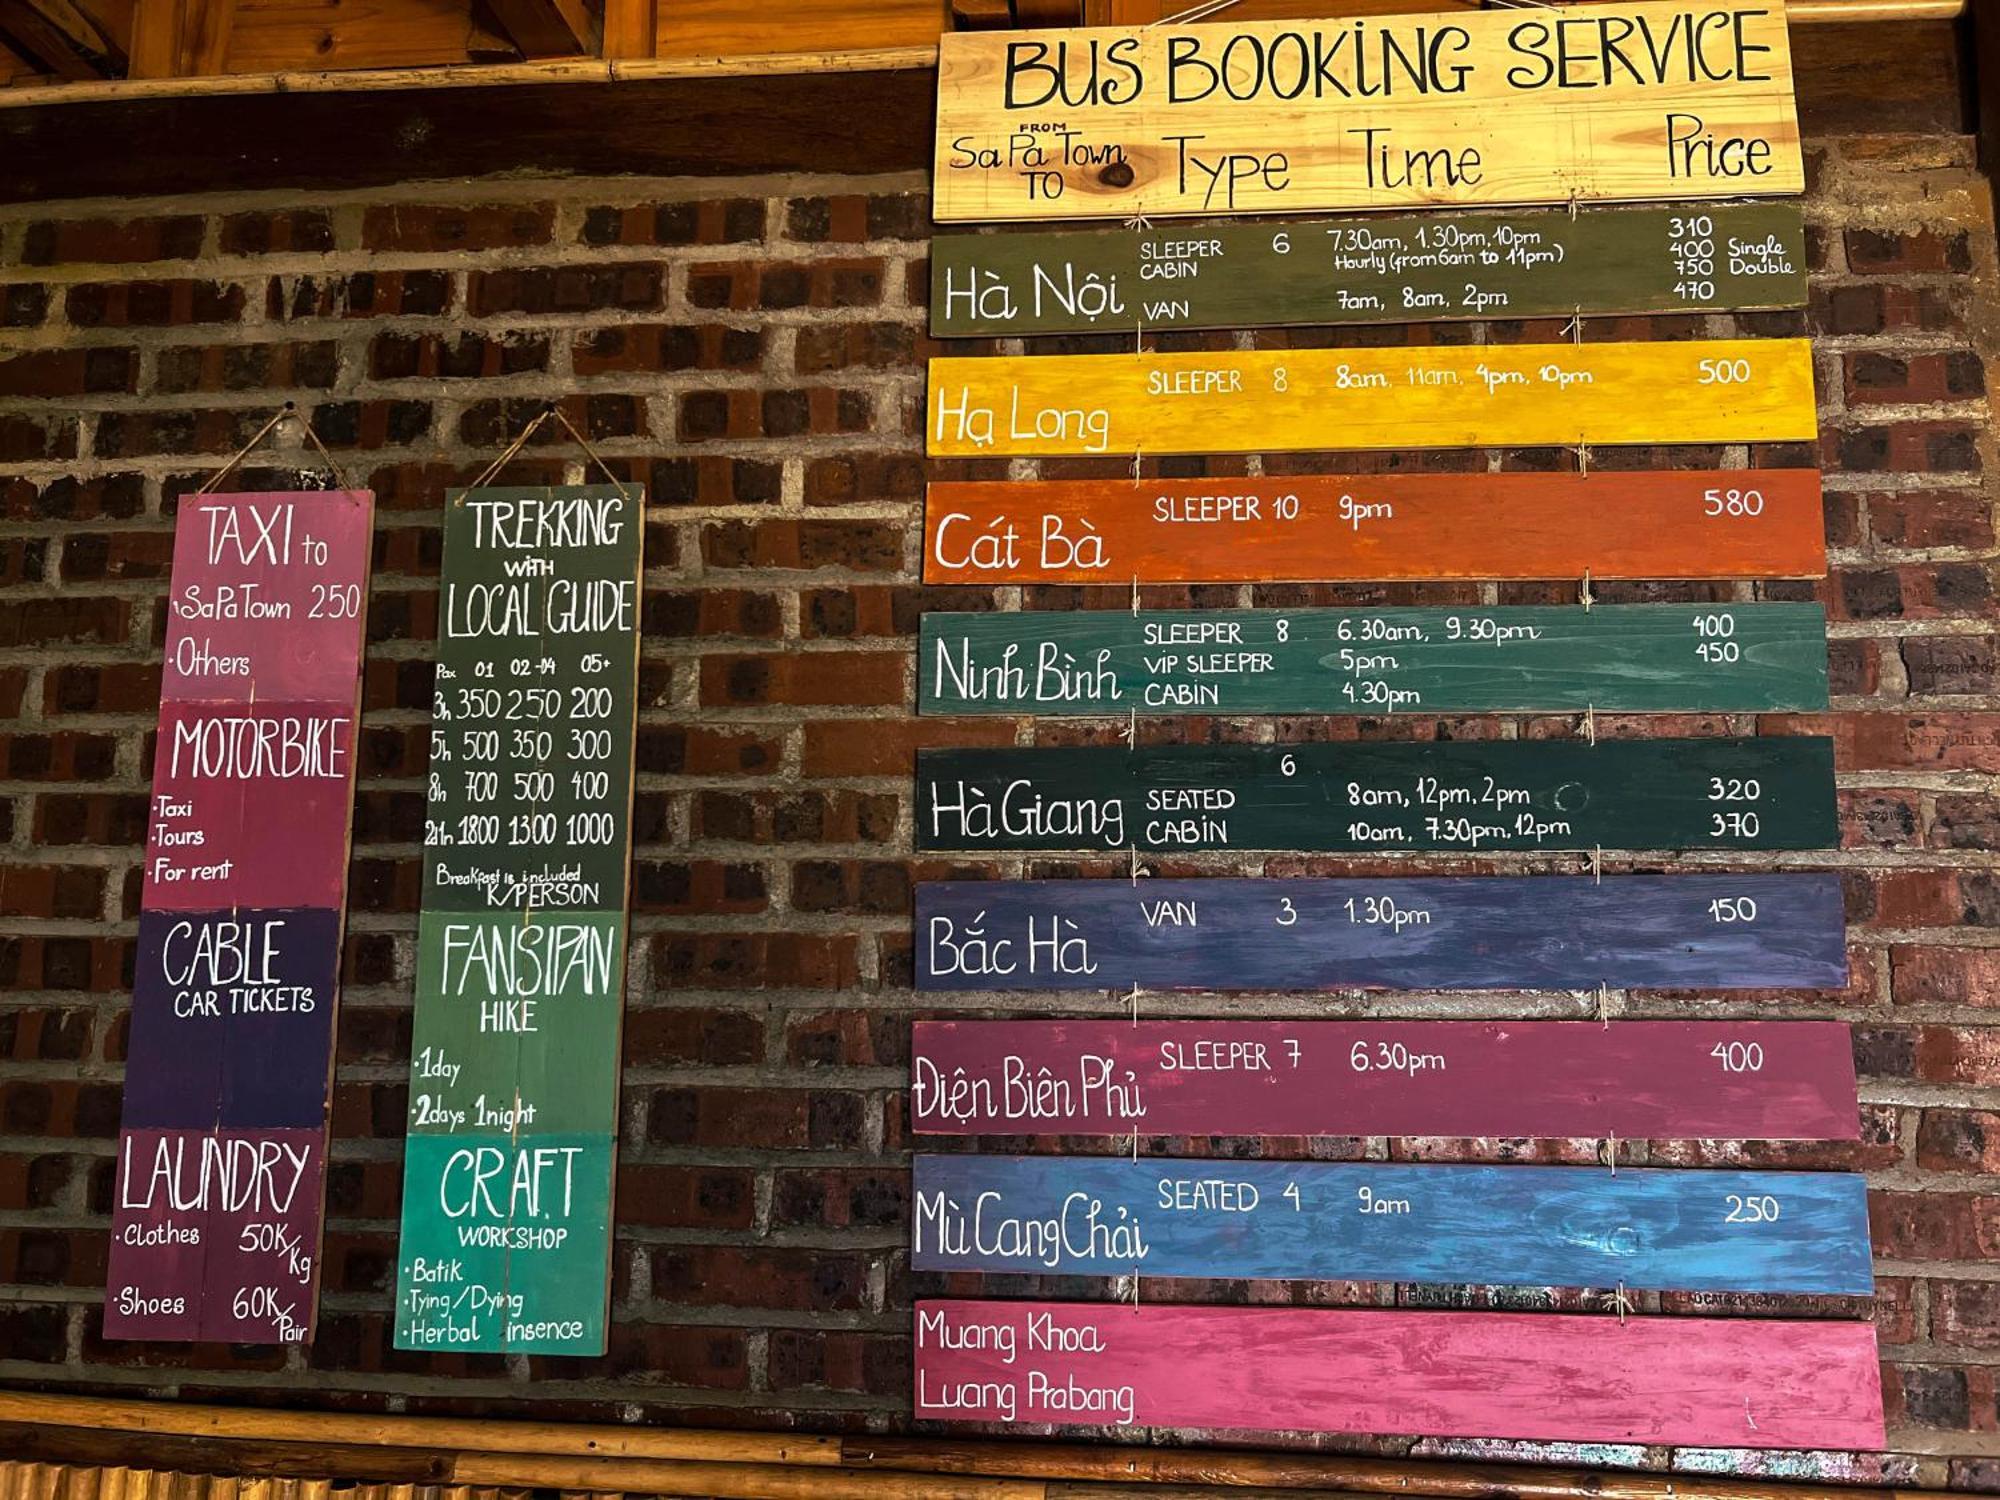 BUS BOOKING SERVICE
FROM
Sa Pa Town Type Time Price
TO
Hà Nội
SLEEPER 6 7.30am, 1.30pm, 10pm 310
CABIN Hourly (from 6am to 11pm) 400 Single
750 Double
VAN 7am, 8am, 2pm 470
Hạ Long
SLEEPER 8 8am, 11am, 4pm, 10pm 500
Cát Bà
SLEEPER 10 9pm 580
Ninh Bình
SLEEPER 8 6.30am, 9.30pm 400
VIP SLEEPER 5pm 450
CABIN 4.30pm
Hà Giang
6
SEATED 8am, 12pm, 2pm 320
CABIN 10am, 7.30pm, 12pm 370
Bắc Hà
VAN 3 1.30pm 150
Điện Biên Phủ
SLEEPER 7 6.30pm 400
Mù Cang Chải
SEATED 4 9am 250
Muang Khoa
Luang Prabang
TAXI to
·SaPa Town 250
·Others
MOTORBIKE
·Taxi
·Tours
·For rent
CABLE
CAR TICKETS
LAUNDRY
·Clothes 50K/Kg
·Shoes 60K/Pair
TREKKING
WITH
LOCAL GUIDE
Pax 01 02-04 05+
3h 350 250 200
5h 500 350 300
8h 700 500 400
2d1n 1800 1300 1000
Breakfast is included
K/PERSON
FANSIPAN
HIKE
·1day
·2days 1night
CRAFT
WORKSHOP
·Batik
·Tying/Dying
·Herbal insence